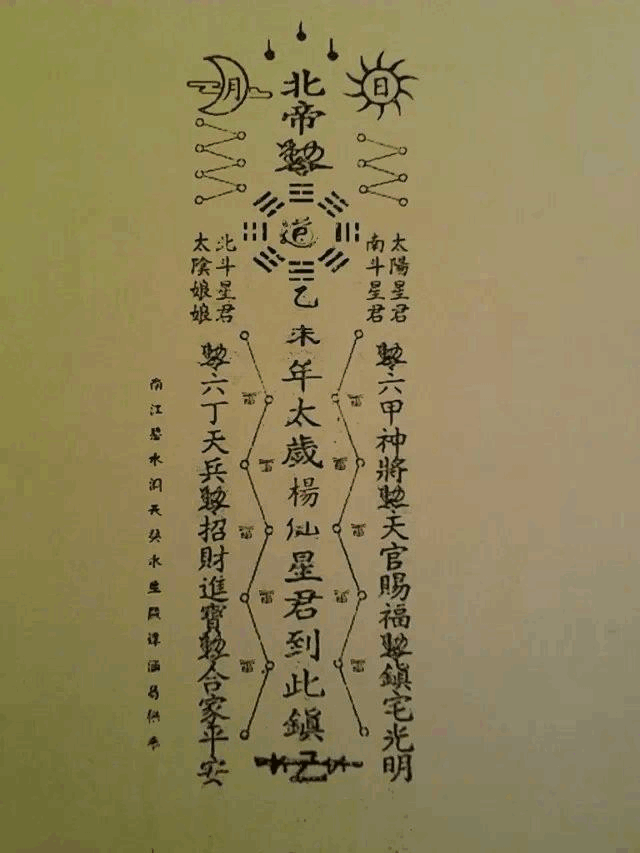 日
月
北帝勅
道
太陽星君
南斗星君
北斗星君
太陰娘娘
勅六甲神將勅天官賜福勅鎮宅光明
乙未年太歲楊仙星君到此鎮
勅六丁天兵勅招財進寶勅合家平安
南江碧水洞天